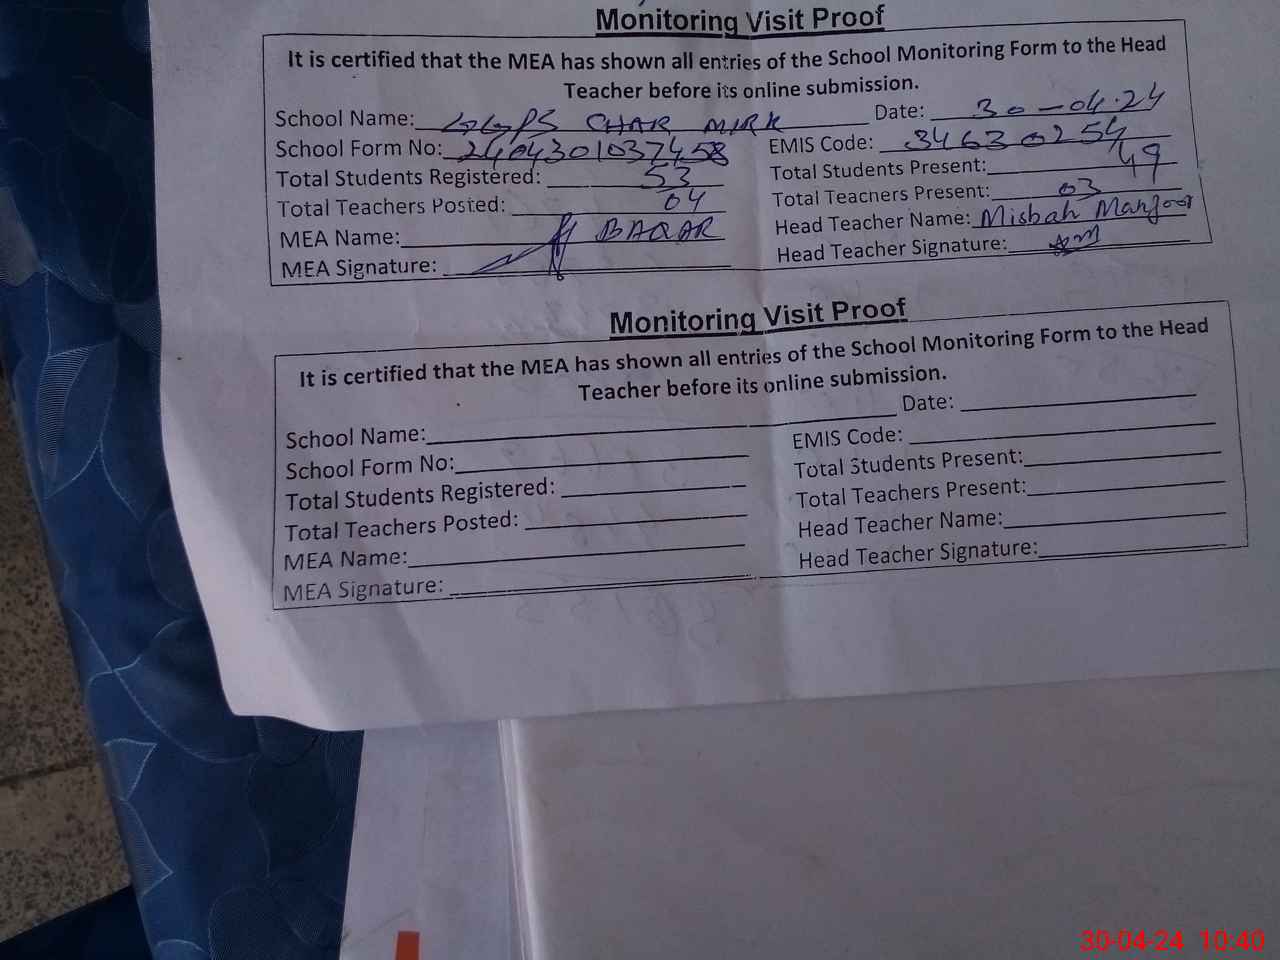 Monitoring Visit Proof
It is certified that the MEA has shown all entries of the School Monitoring Form to the Head
Teacher before its online submission.
School Name: GGPS CHAR MIRK Date: 30-04-24
School Form No: 2404301037458 EMIS Code: 34630254
Total Students Registered: 53 Total Students Present: 49
Total Teachers Posted: 04 Total Teachers Present: 03
MEA Name: BAQAR Head Teacher Name: Misbah Manzoor
MEA Signature: Head Teacher Signature:
Monitoring Visit Proof
It is certified that the MEA has shown all entries of the School Monitoring Form to the Head
Teacher before its online submission.
School Name: Date:
School Form No: EMIS Code:
Total Students Registered: Total Students Present:
Total Teachers Posted: Total Teachers Present:
MEA Name: Head Teacher Name:
MEA Signature: Head Teacher Signature:
30-04-24 10:40